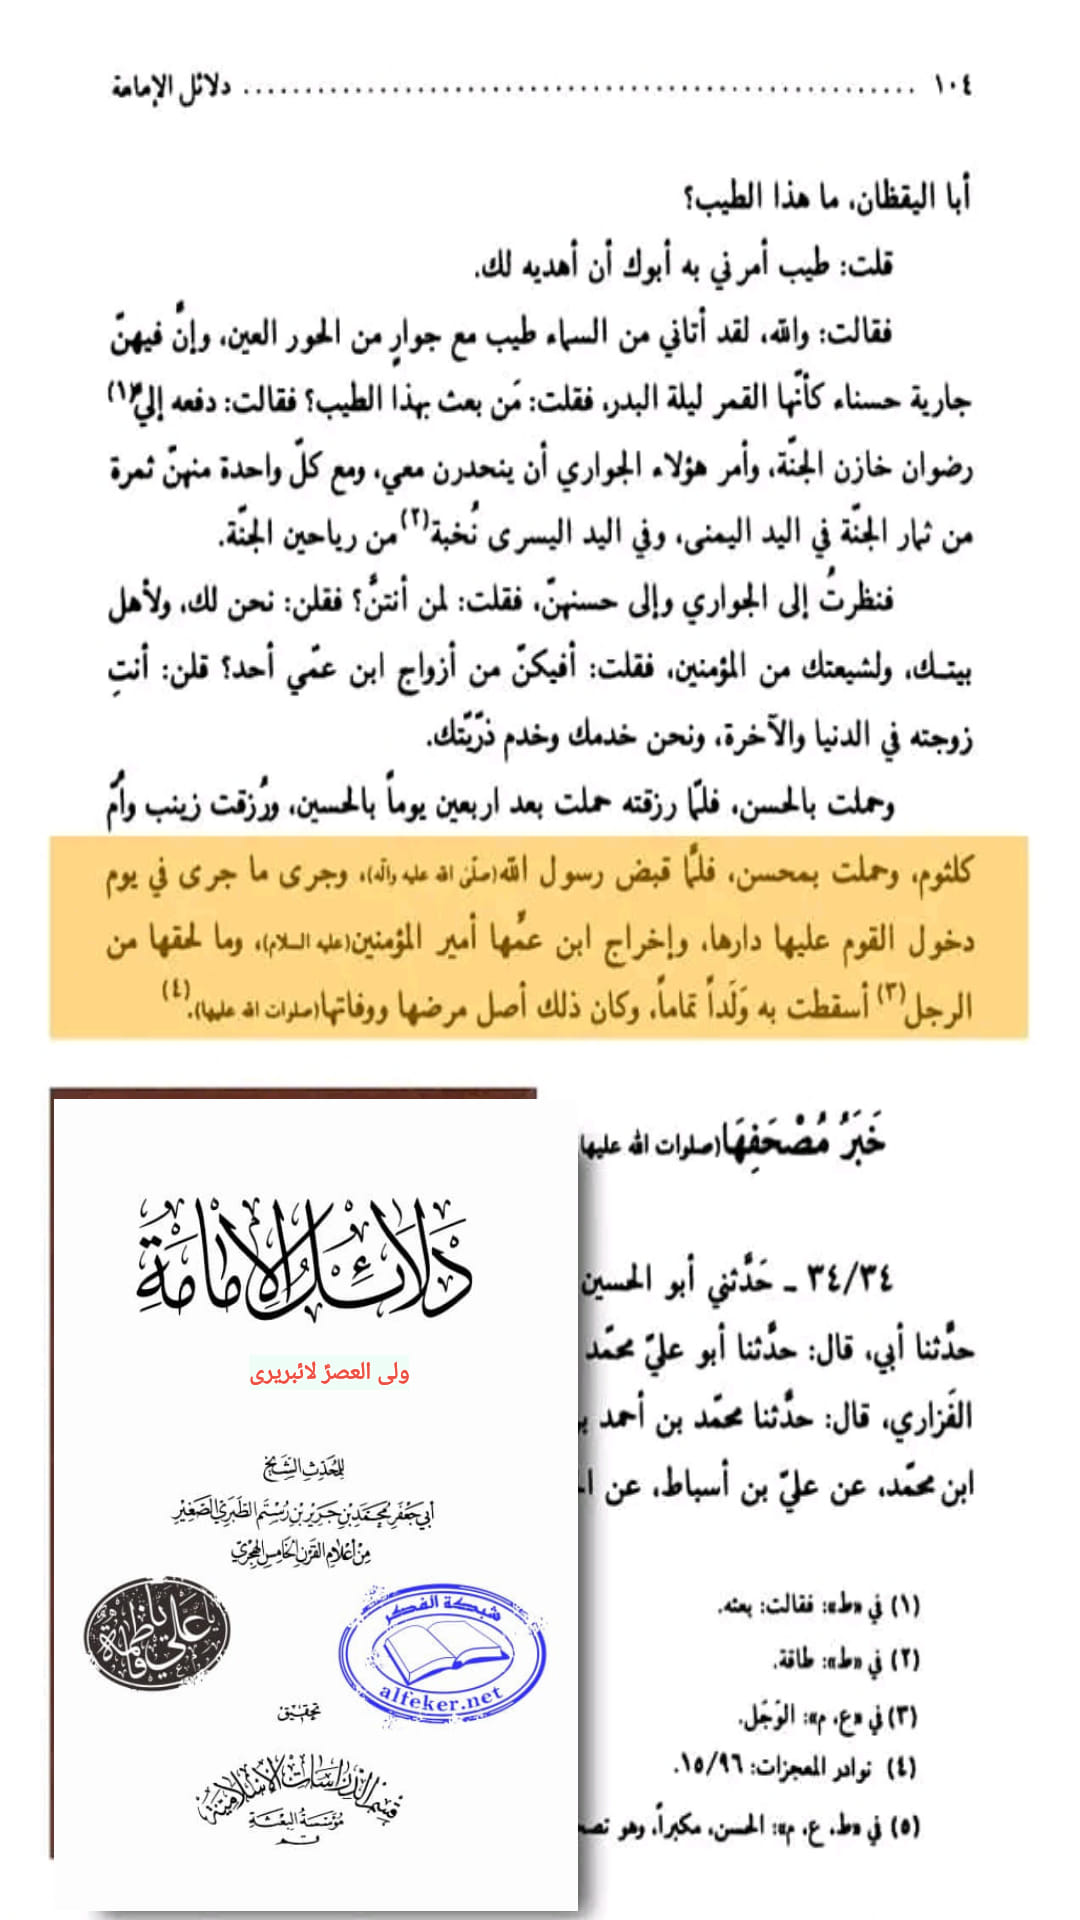 ١٠٤ ........................................................ دلائل الإمامة
أبا اليقظان، ما هذا الطيب؟
قلت: طيب أمرني به أبوك أن أهديه لك.
فقالت: والله، لقد أتاني من السماء طيب مع جوارٍ من الحور العين، وإنَّ فيهنّ
جارية حسناء كأنّها القمر ليلة البدر، فقلت: مَن بعث بهذا الطيب؟ فقالت: دفعه إليَّ(١)
رضوان خازن الجنّة، وأمر هؤلاء الجواري أن ينحدرن معي، ومع كلّ واحدة منهنّ ثمرة
من ثمار الجنّة في اليد اليمنى، وفي اليد اليسرى نُخبة(٢) من رياحين الجنّة.
فنظرتُ إلى الجواري وإلى حسنهنّ، فقلت: لمن أنتنَّ؟ فقلن: نحن لك، ولأهل
بيتك، ولشيعتك من المؤمنين، فقلت: أفيكنّ من أزواج ابن عمّي أحد؟ قلن: أنتِ
زوجته في الدنيا والآخرة، ونحن خدمك وخدم ذرّيّتك.
وحملت بالحسن، فلمّا رزقته حملت بعد اربعين يوماً بالحسين، ورُزقت زينب وأُمّ
كلثوم، وحملت بمحسن، فلمَّا قبض رسول الله(صلّى الله عليه وآله)، وجرى ما جرى في يوم
دخول القوم عليها دارها، وإخراج ابن عمّها أمير المؤمنين(عليه السلام)، وما لحقها من
الرجل(٣) أسقطت به وَلَداً تماماً، وكان ذلك أصل مرضها ووفاتها(صلوات الله عليها).(٤)
خَبَرُ مُصْحَفِهَا(صلوات الله عليها
٣٤/٣٤ ـ حَدَّثني أبو الحسين
حدَّثنا أبي، قال: حدَّثنا أبو عليّ محمّد
الفَزاري، قال: حدَّثنا محمّد بن أحمد
ابن محمّد، عن عليّ بن أسباط، عن
(١) في «ط»: فقالت: بعثه.
(٢) في «ط»: طاقة.
(٣) في «ع، م»: الوَجَل.
(٤) نوادر المعجزات: ١٥/٩٦.
(٥) في «ط، ع، م»: الحسن، مكبراً، وهو
دلائل الإمامة
ولی العصرؑ لائبریری
للمحدث الشيخ
أبي جعفر محمد بن جرير بن رستم الطبري الصغير
من أعلام القرن الخامس الهجري
يا علي يا فاطمة
شبكة الفكر
alfeker.net
تحقيق
قسم الدراسات الإسلامية
مؤسسة البعثة
قم